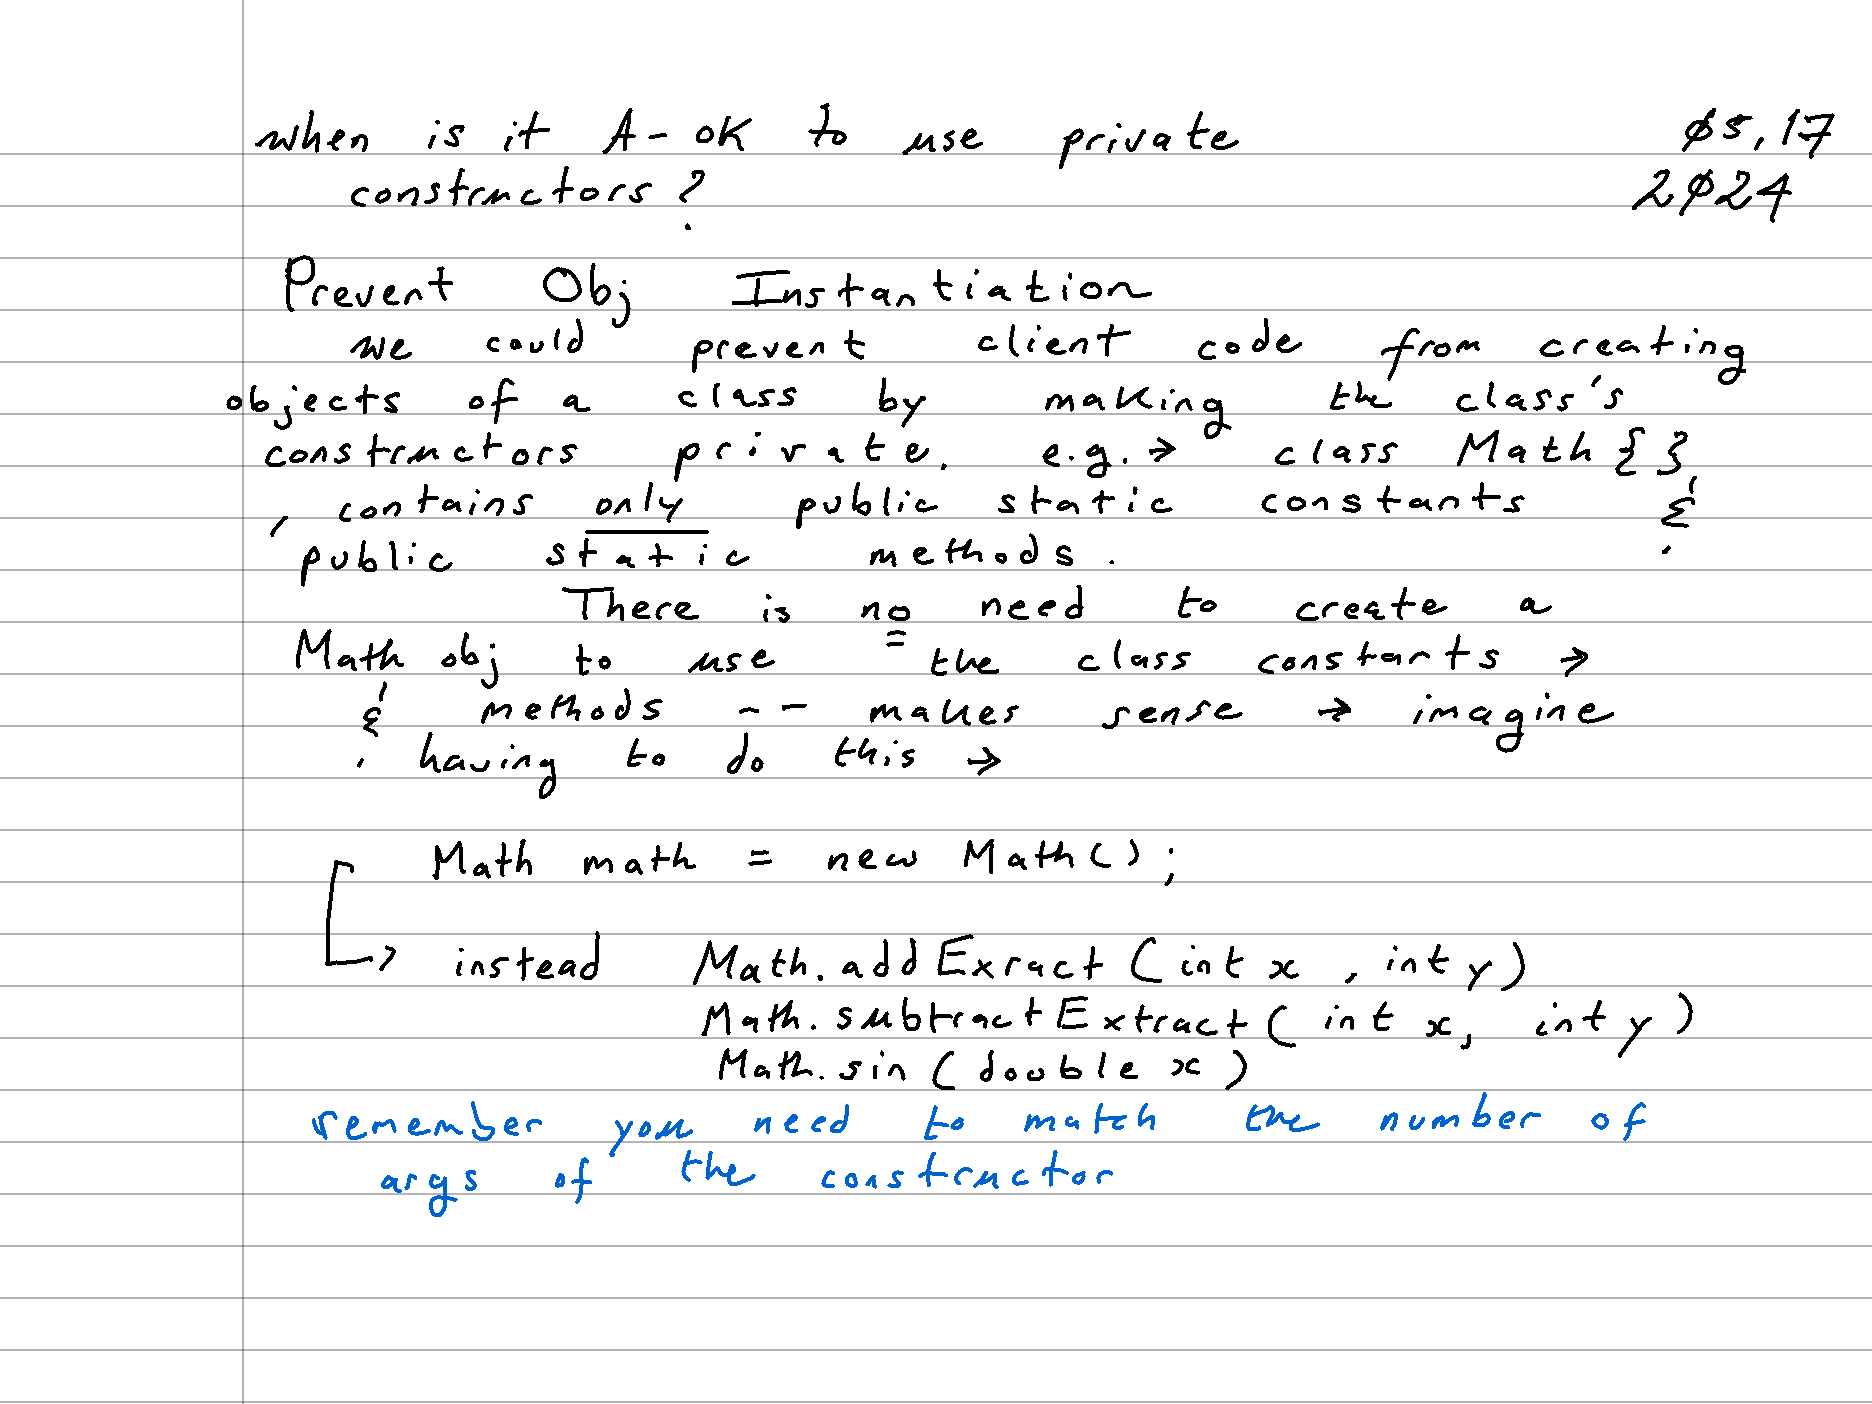 when is it A-OK to use private
constructors?
05, 17
2024
Prevent Obj Instantiation
we could prevent client code from creating
objects of a class by making the class's
constructors private. e.g. → class Math {}
, contains only public static constants &
public static methods.
There is no need to create a
Math obj to use the class constants →
& methods -- makes sense → imagine
having to do this →
Math math = new Math();
instead Math.addExract (int x, int y)
Math.subtractExtract (int x, int y)
Math.sin (double x)
remember you need to match the number of
args of the constructor